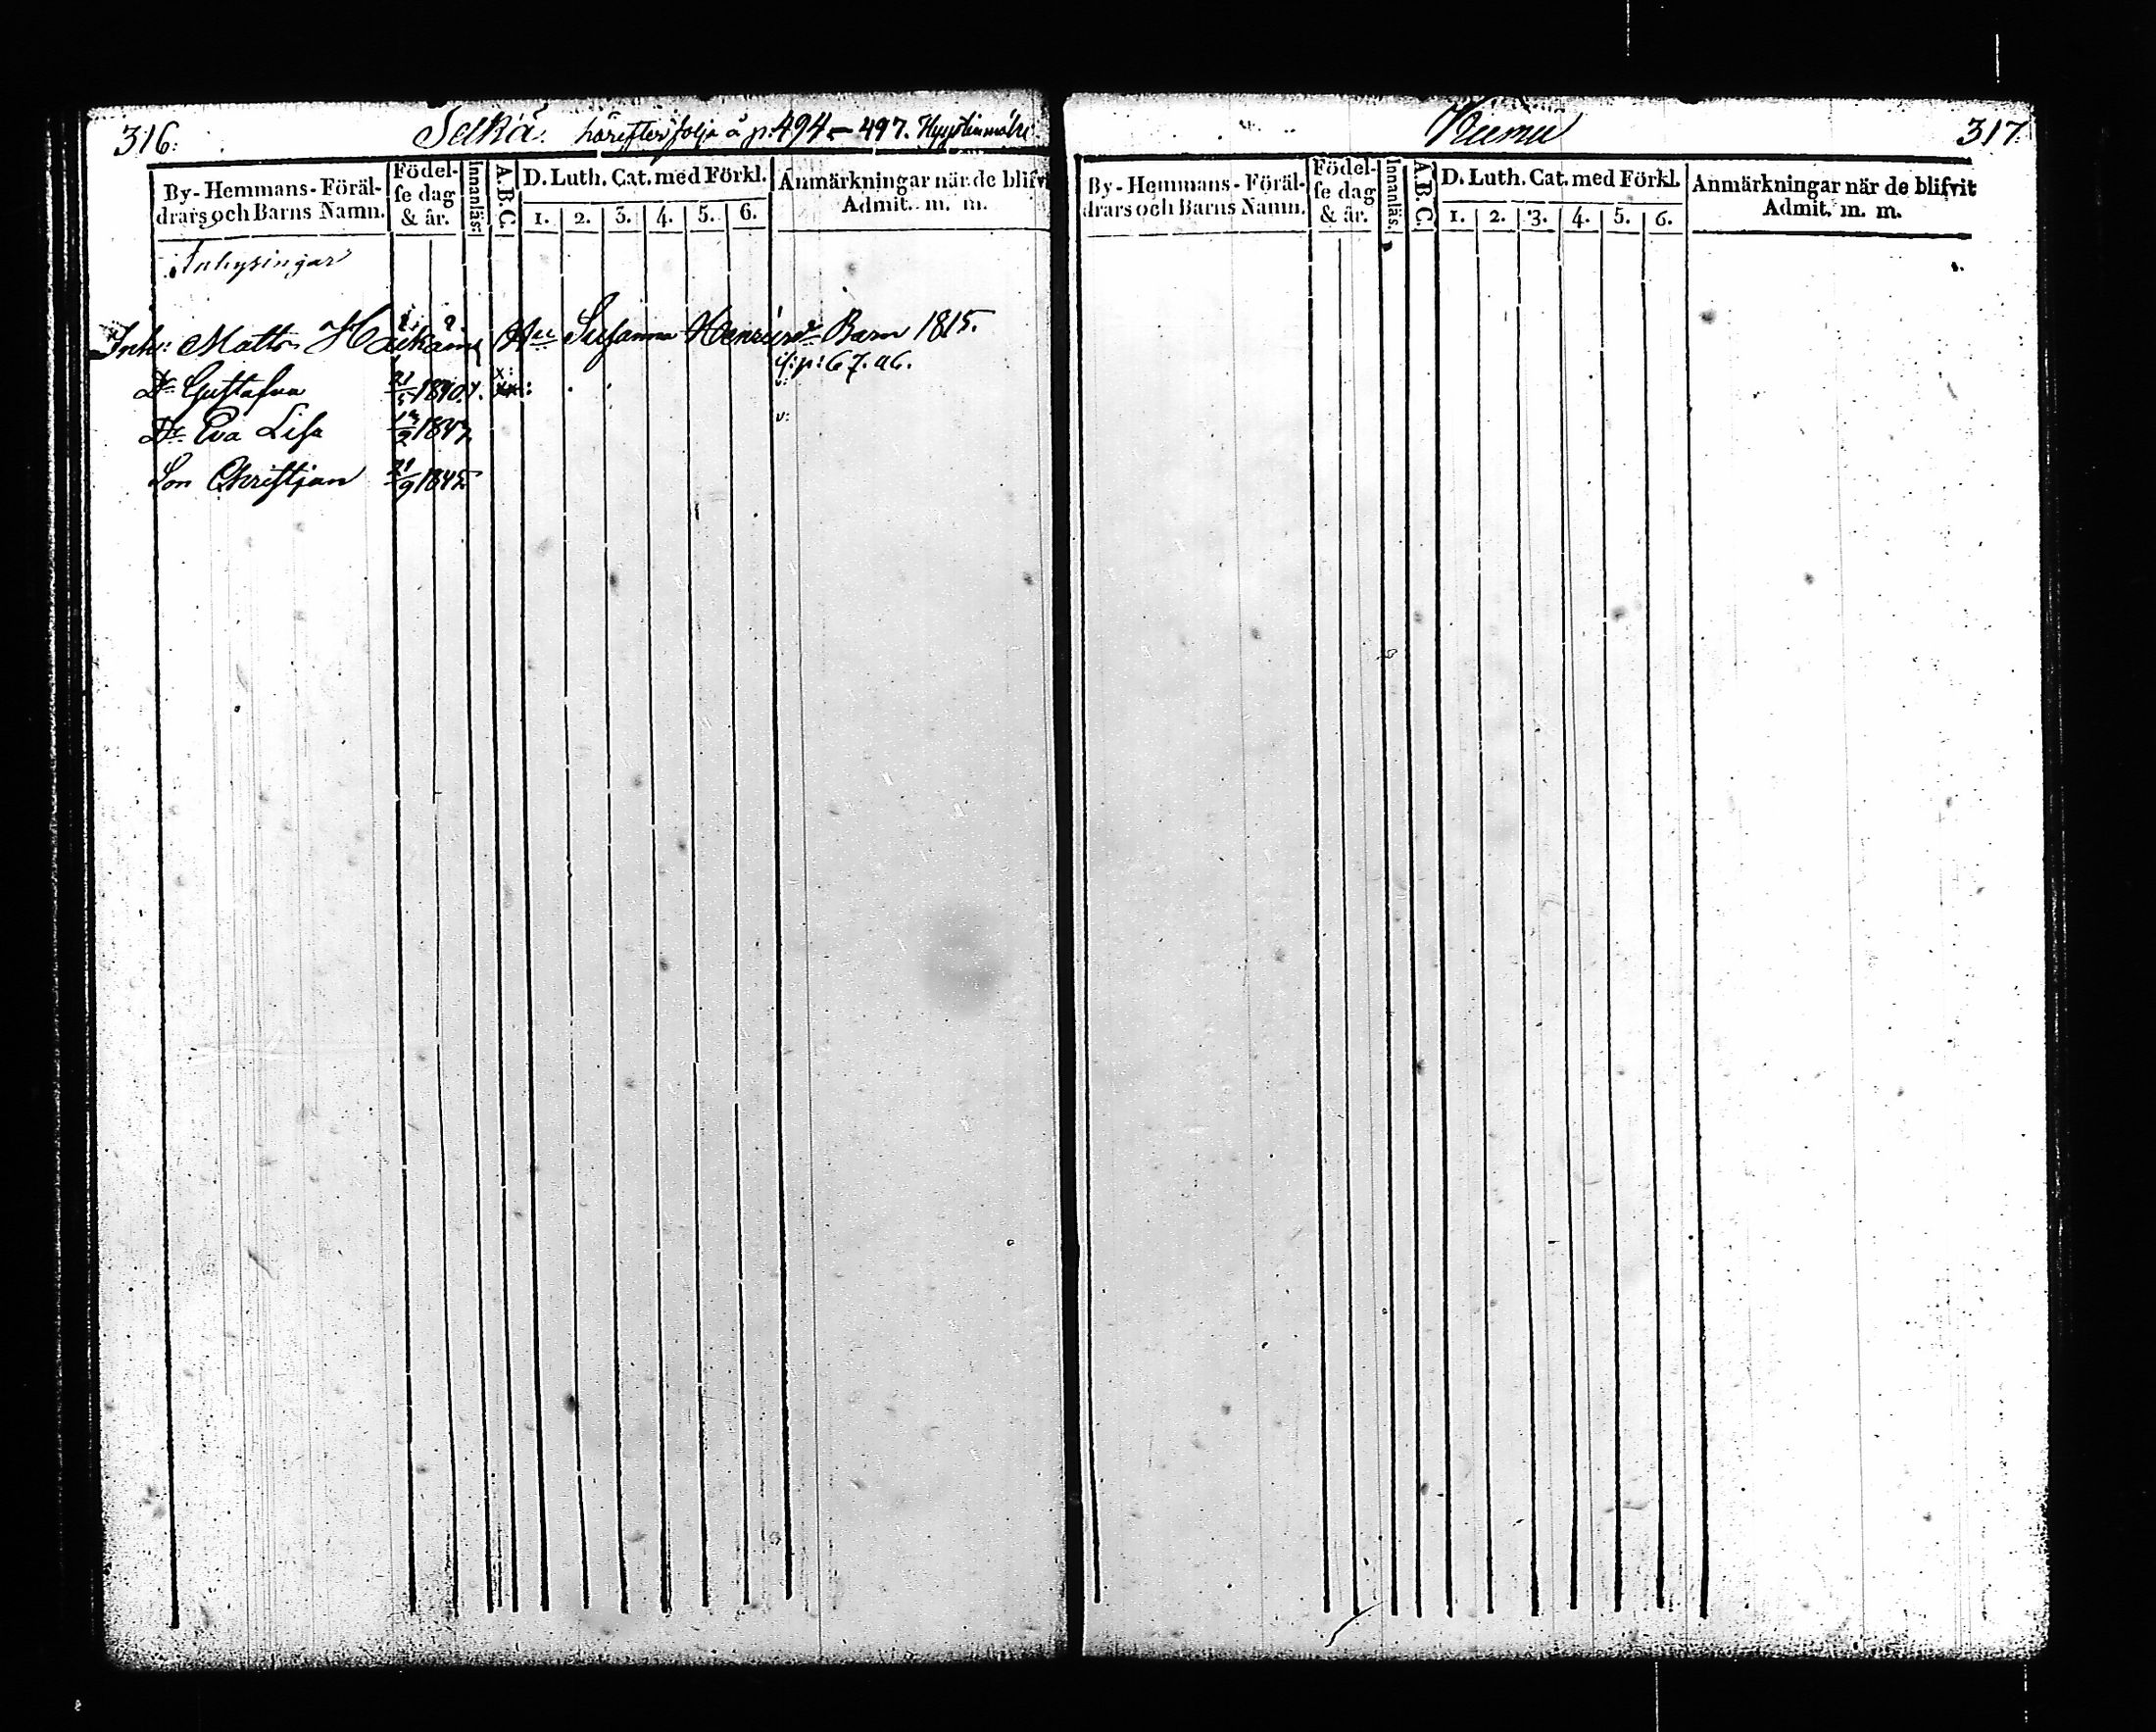 316.
Selkä. härefter följa å p. 494 – 497. Hyypiinmäki.
By-Hemmans-Föräl-
drars och Barns Namn.
Födel-
se dag
& år.
Innanläs.
A.B.C.
D. Luth. Cat. med Förkl.
1. 2. 3. 4. 5. 6.
Anmärkningar när de blifv
Admit. m. m.
Inhysingar
Inh: Matts Hu Susanna Barn 1815.
p: 67. a6.
Dr Gustafva 21/5 1840. x: v:
Dr Eva Lisa v:
Son Christjan 21/9 1845
Kumu
317.
By-Hemmans-Föräl-
drars och Barns Namn.
Födel-
se dag
& år.
Innanläs.
A.B.C.
D. Luth. Cat. med Förkl.
1. 2. 3. 4. 5. 6.
Anmärkningar när de blifvit
Admit. m. m.